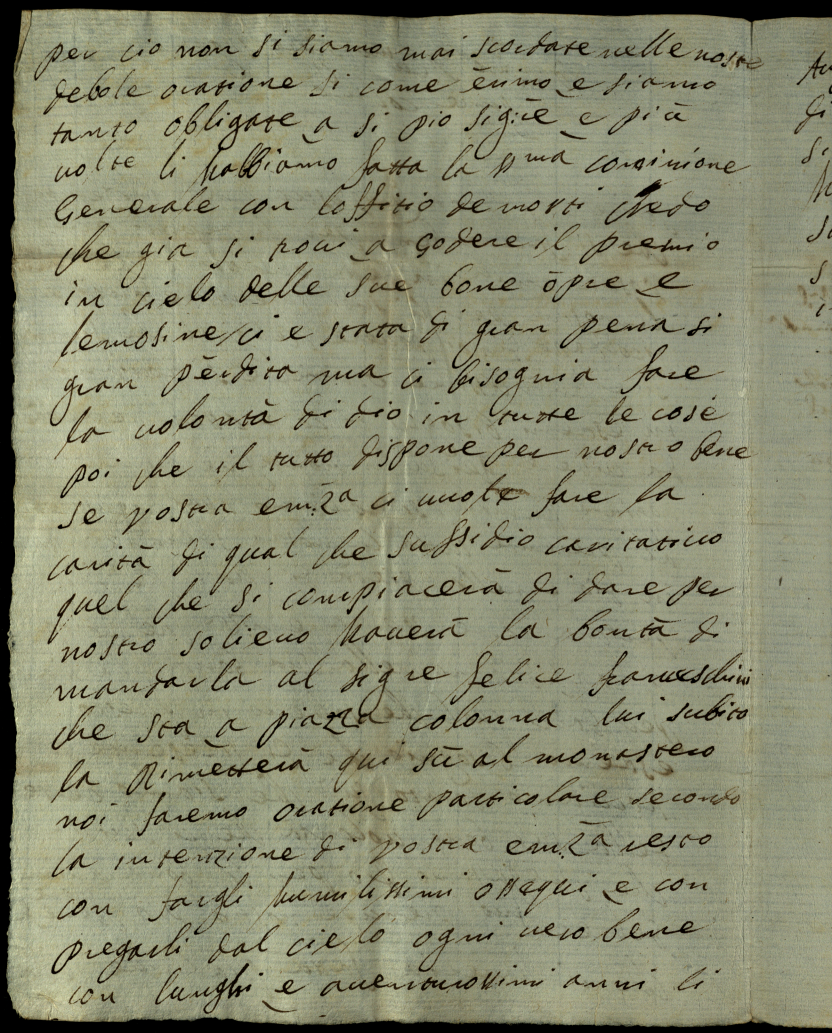 per cio non si siamo mai scordate nelle nostre
debole oratione si come ērimo e siamo
tanto obligate a si pio sig:re e più
uolte li habbiamo fatta la s:ma cominione
Generale con loffitio de morti chredo
che gia si troui a Godere il premio
in cielo delle sue bone ōpre e
lemosine/ci e stata di gran pena si
gran pērdita ma ci bisognia fare
la uolontà di dio in tutte le cose
poi che il tutto dispone per nostro bene
se vostra em:za ci uuole fare la
carità di qual che sussidio caritatiuo
quel che si compiacerà di dare per
nostro solieuo hauerà la bontà di
mandarla al sigre felice franceschini
che sta a piazza colonna lui subito
la Rimetterà qui sù al monastero
noi faremo oratione particolare secondo
la intenzione di vostra em:za resto
con fargli humilissimi ossequi e con
pregarli dal cielo ogni uero bene
con lunghi e auenturossimi anni li